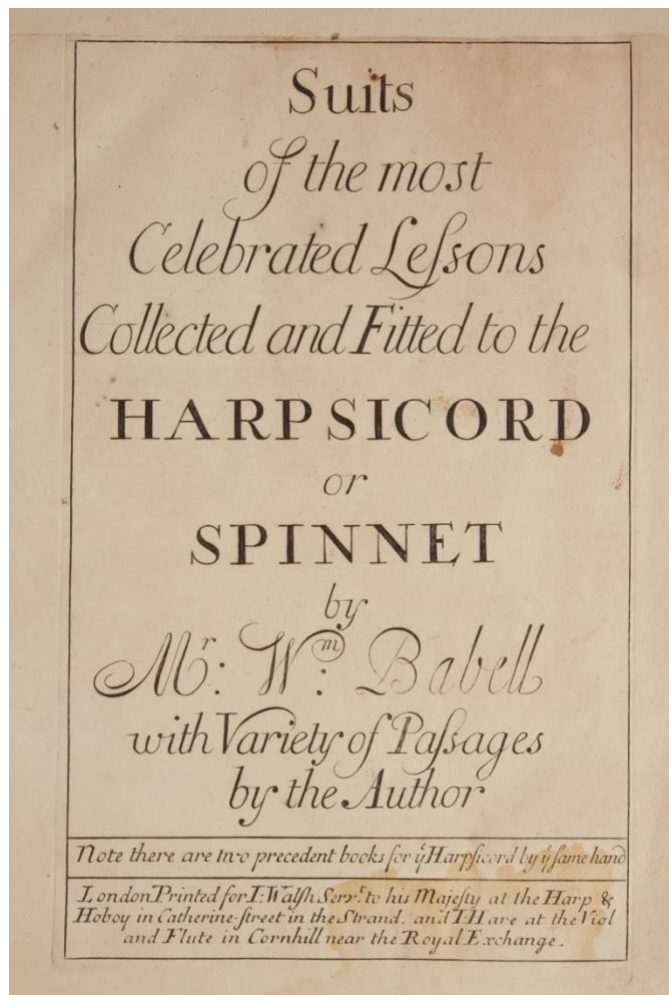 Suits
of the most
Celebrated Leſsons
Collected and Fitted to the
HARPSICORD
or
SPINNET
by
Mr: Wm: Babell
with Variety of Paſsages
by the Author
Note there are two precedent books for ye Harpſicord by ye ſame hand
London Printed for I: Walſh Servt. to his Majeſty at the Harp &
Hoboy in Catherine-ſtreet in the Strand. and I: Hare at the Viol
and Flute in Cornhill near the Royal Exchange.